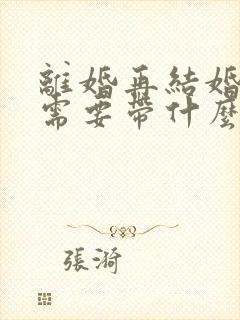 離婚再結婚
需要帶什麼
張漪